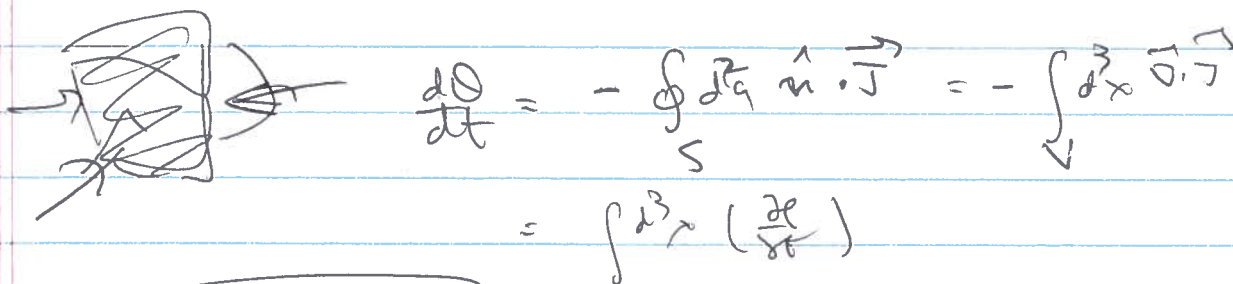 dQ/dt = - ∮_S d²a n̂·J⃗ = - ∫_V d³x ∇⃗·J⃗
= ∫ d³x (∂ρ/∂t)